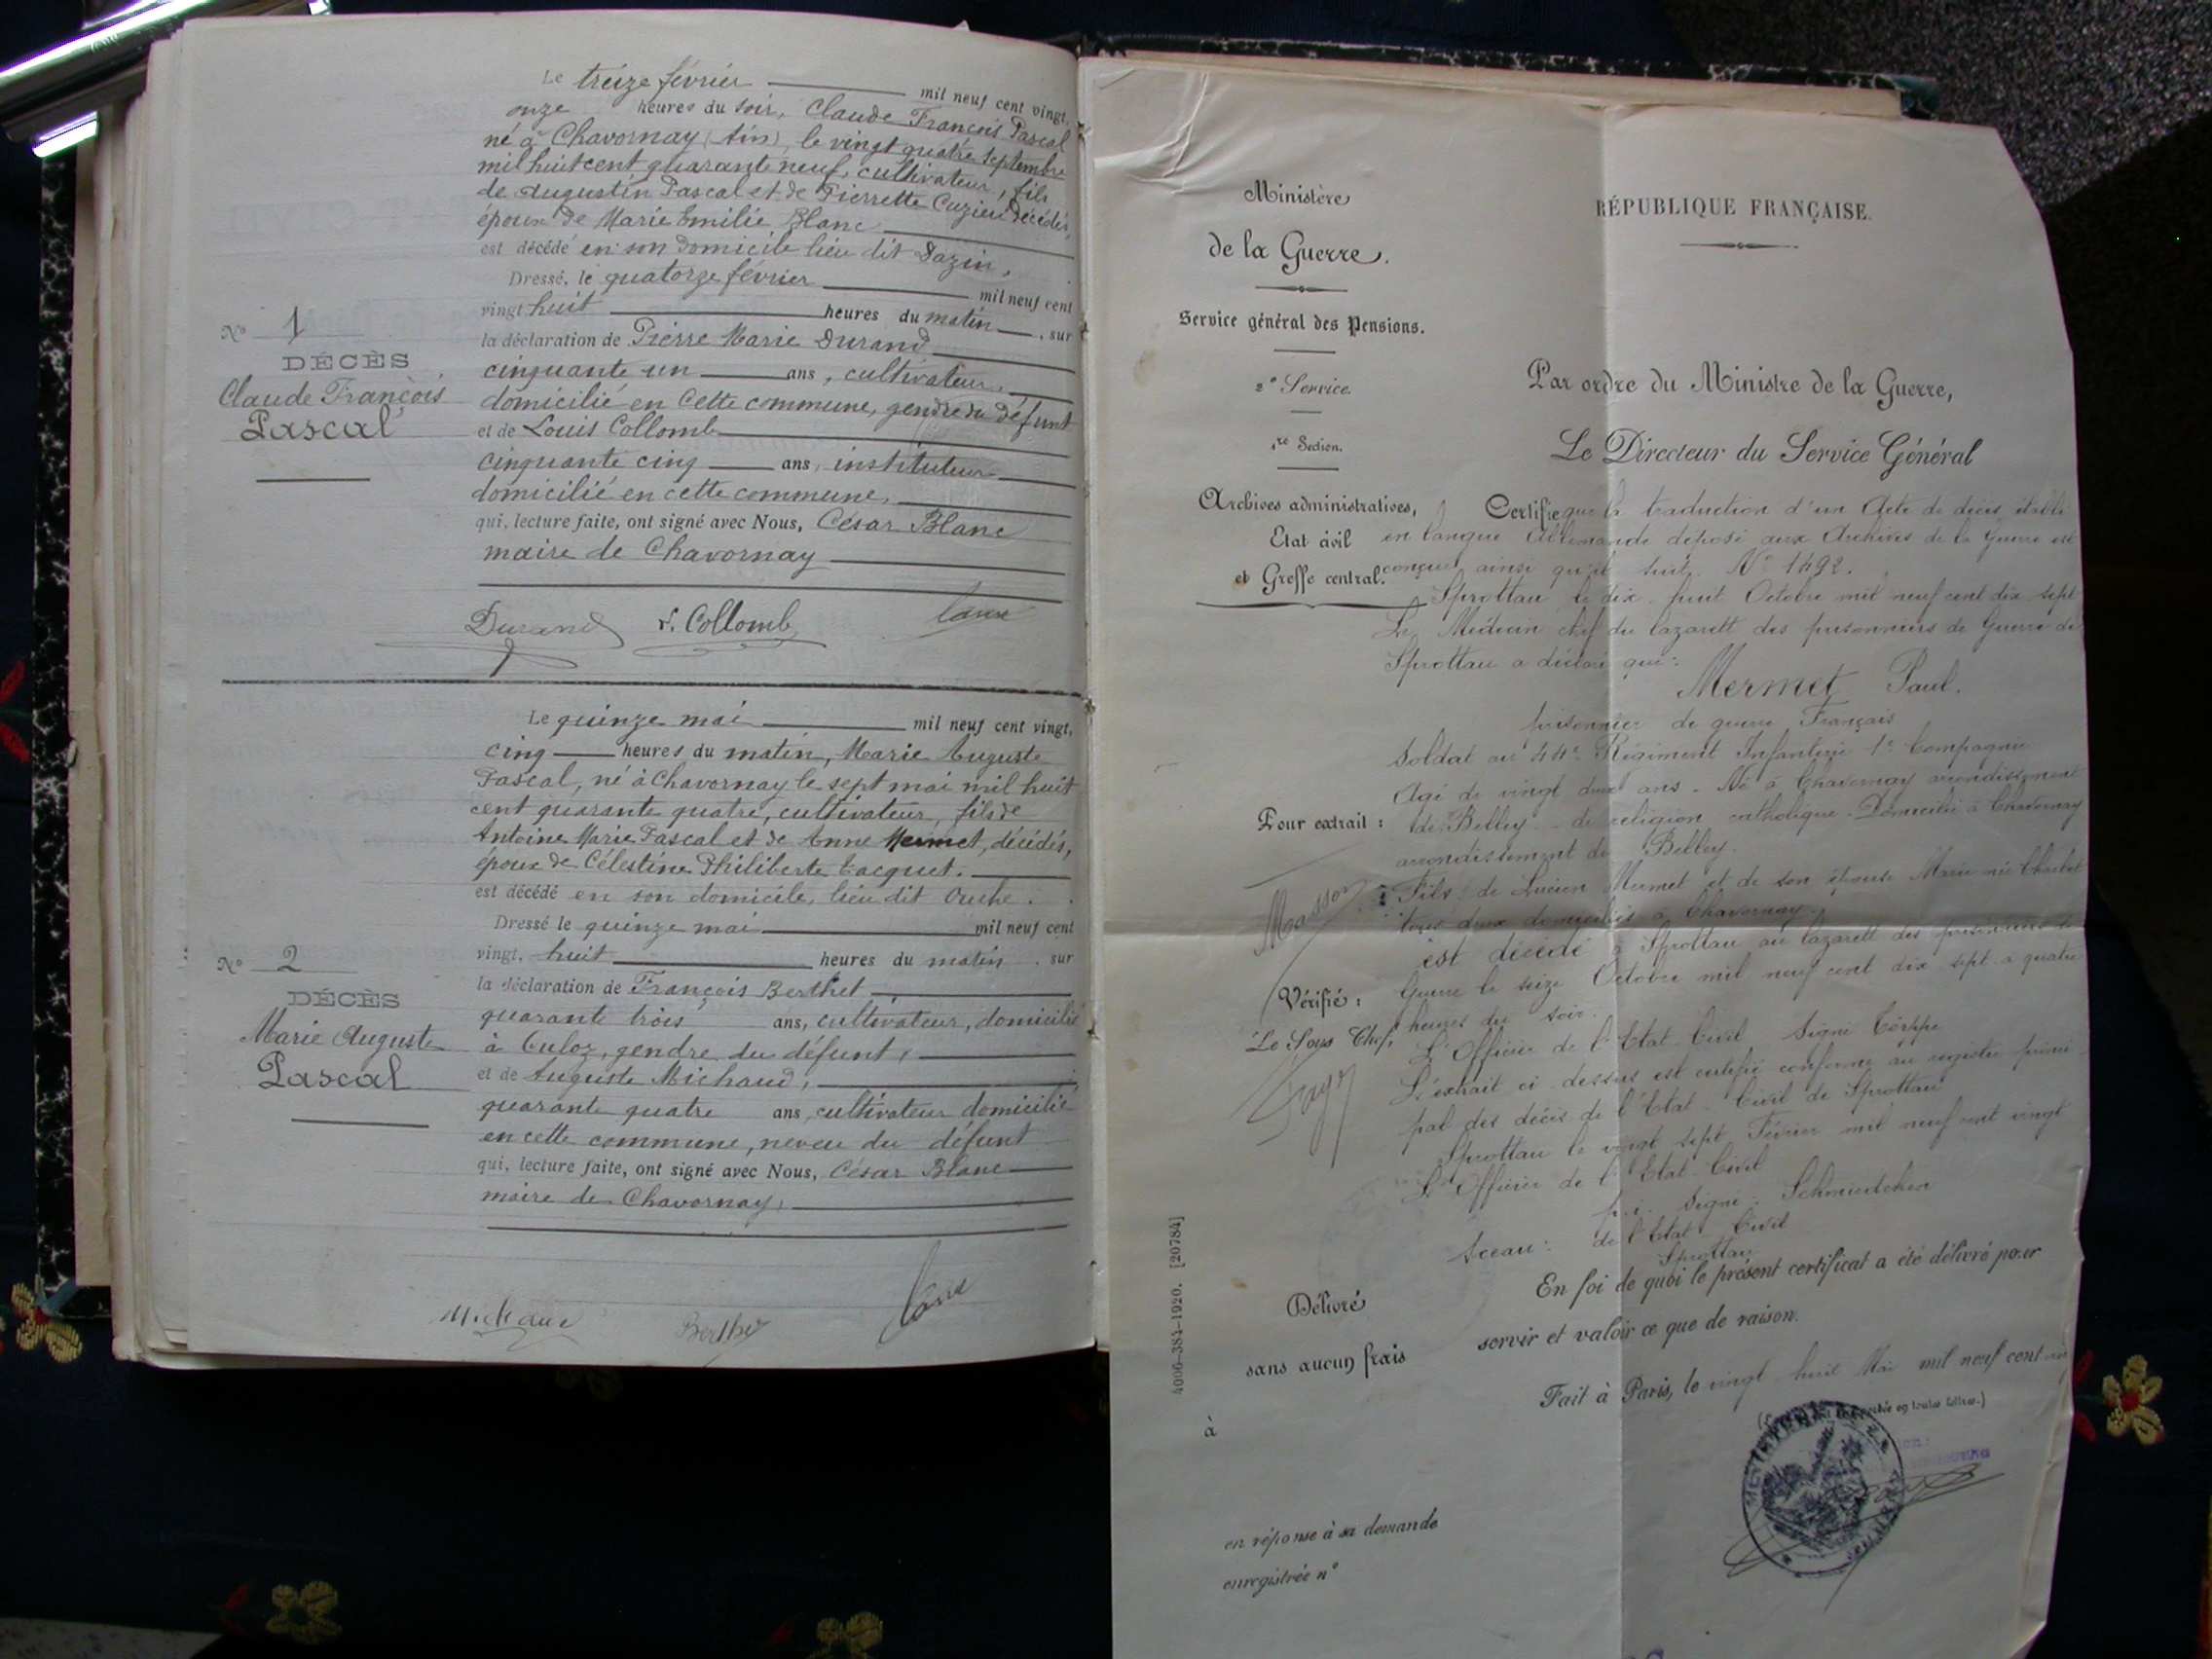 Le treize février mil neuf cent vingt,
onze heures du soir, Claude François Pascal
né à Chavornay (Ain), le vingt quatre septembre
mil huit cent quarante neuf, cultivateur, fils
de Augustin Pascal et de Pierrette Cuzieu décédés,
époux de Marie Emilie Blanc
est décédé en son domicile lieu dit Dazin,
Dressé, le quatorze février mil neuf cent
vingt huit heures du matin, sur
la déclaration de Pierre Marie Durand
cinquante un ans, cultivateur,
domicilié en cette commune, gendre du défunt
et de Louis Collomb
cinquante cinq ans, instituteur
domicilié en cette commune,
qui, lecture faite, ont signé avec Nous, César Blanc
maire de Chavornay
N° 1
DÉCÈS
Claude François
Pascal
Durand L. Collomb Blanc
Le quinze mai mil neuf cent vingt,
cinq heures du matin, Marie Auguste
Pascal, né à Chavornay le sept mai mil huit
cent quarante quatre, cultivateur, fils de
Antoine Marie Pascal et de Anne Mermet, décédés,
époux de Célestine Philiberte Tacquet.
est décédé en son domicile, lieu dit Ouche.
Dressé le quinze mai mil neuf cent
vingt, huit heures du matin, sur
la déclaration de François Berthet
quarante trois ans, cultivateur, domicilié
à Culoz, gendre du défunt,
et de Auguste Michaud,
quarante quatre ans, cultivateur domicilié
en cette commune, neveu du défunt
qui, lecture faite, ont signé avec Nous, César Blanc
maire de Chavornay,
N° 2
DÉCÈS
Marie Auguste
Pascal
Michaud Berthet Blanc
Ministère
de la Guerre.
Service général des Pensions.
2e Service.
1re Section.
Archives administratives,
Etat civil
et Greffe central.
RÉPUBLIQUE FRANÇAISE.
Par ordre du Ministre de la Guerre,
Le Directeur du Service Général
Certifie que la traduction d'un Acte de décès établi
en langue Allemande déposé aux Archives de la Guerre est
conçue ainsi qu'il suit. N° 1492.
Sprottau le dix huit Octobre mil neuf cent dix sept
Le Médecin chef du lazarett des prisonniers de Guerre de
Sprottau a déclaré que :
Mermet Paul.
prisonnier de guerre Français
Soldat au 44e Régiment Infanterie 1e Compagnie
Agé de vingt deux ans - Né à Chavornay arrondissement
de Belley - de religion catholique - Domicilié à Chavornay
arrondissement de Belley.
Fils de Lucien Mermet et de son épouse Marie née Charlet
tous deux domiciliés à Chavornay.
est décédé à Sprottau au lazarett des prisonniers de
Guerre le seize Octobre mil neuf cent dix sept à quatre
heures du soir.
L'Officier de l'Etat Civil Signé
L'extrait ci-dessus est certifié conforme au registre princi-
pal des décès de l'Etat-Civil de Sprottau
Sprottau le vingt sept Février mil neuf cent vingt
L'Officier de l'Etat Civil
p. i. Signé : Schmiedchen
Sceau : de l'Etat Civil
Sprottau
Pour extrait :
Masson
Vérifié :
Le Sous Chef,
En foi de quoi le présent certificat a été délivré pour
servir et valoir ce que de raison.
Fait à Paris, le vingt huit Mai mil neuf cent
en toutes lettres.)
Délivré
sans aucun frais
à
en réponse à sa demande
enregistrée n°
4006-384-1920. [20784]